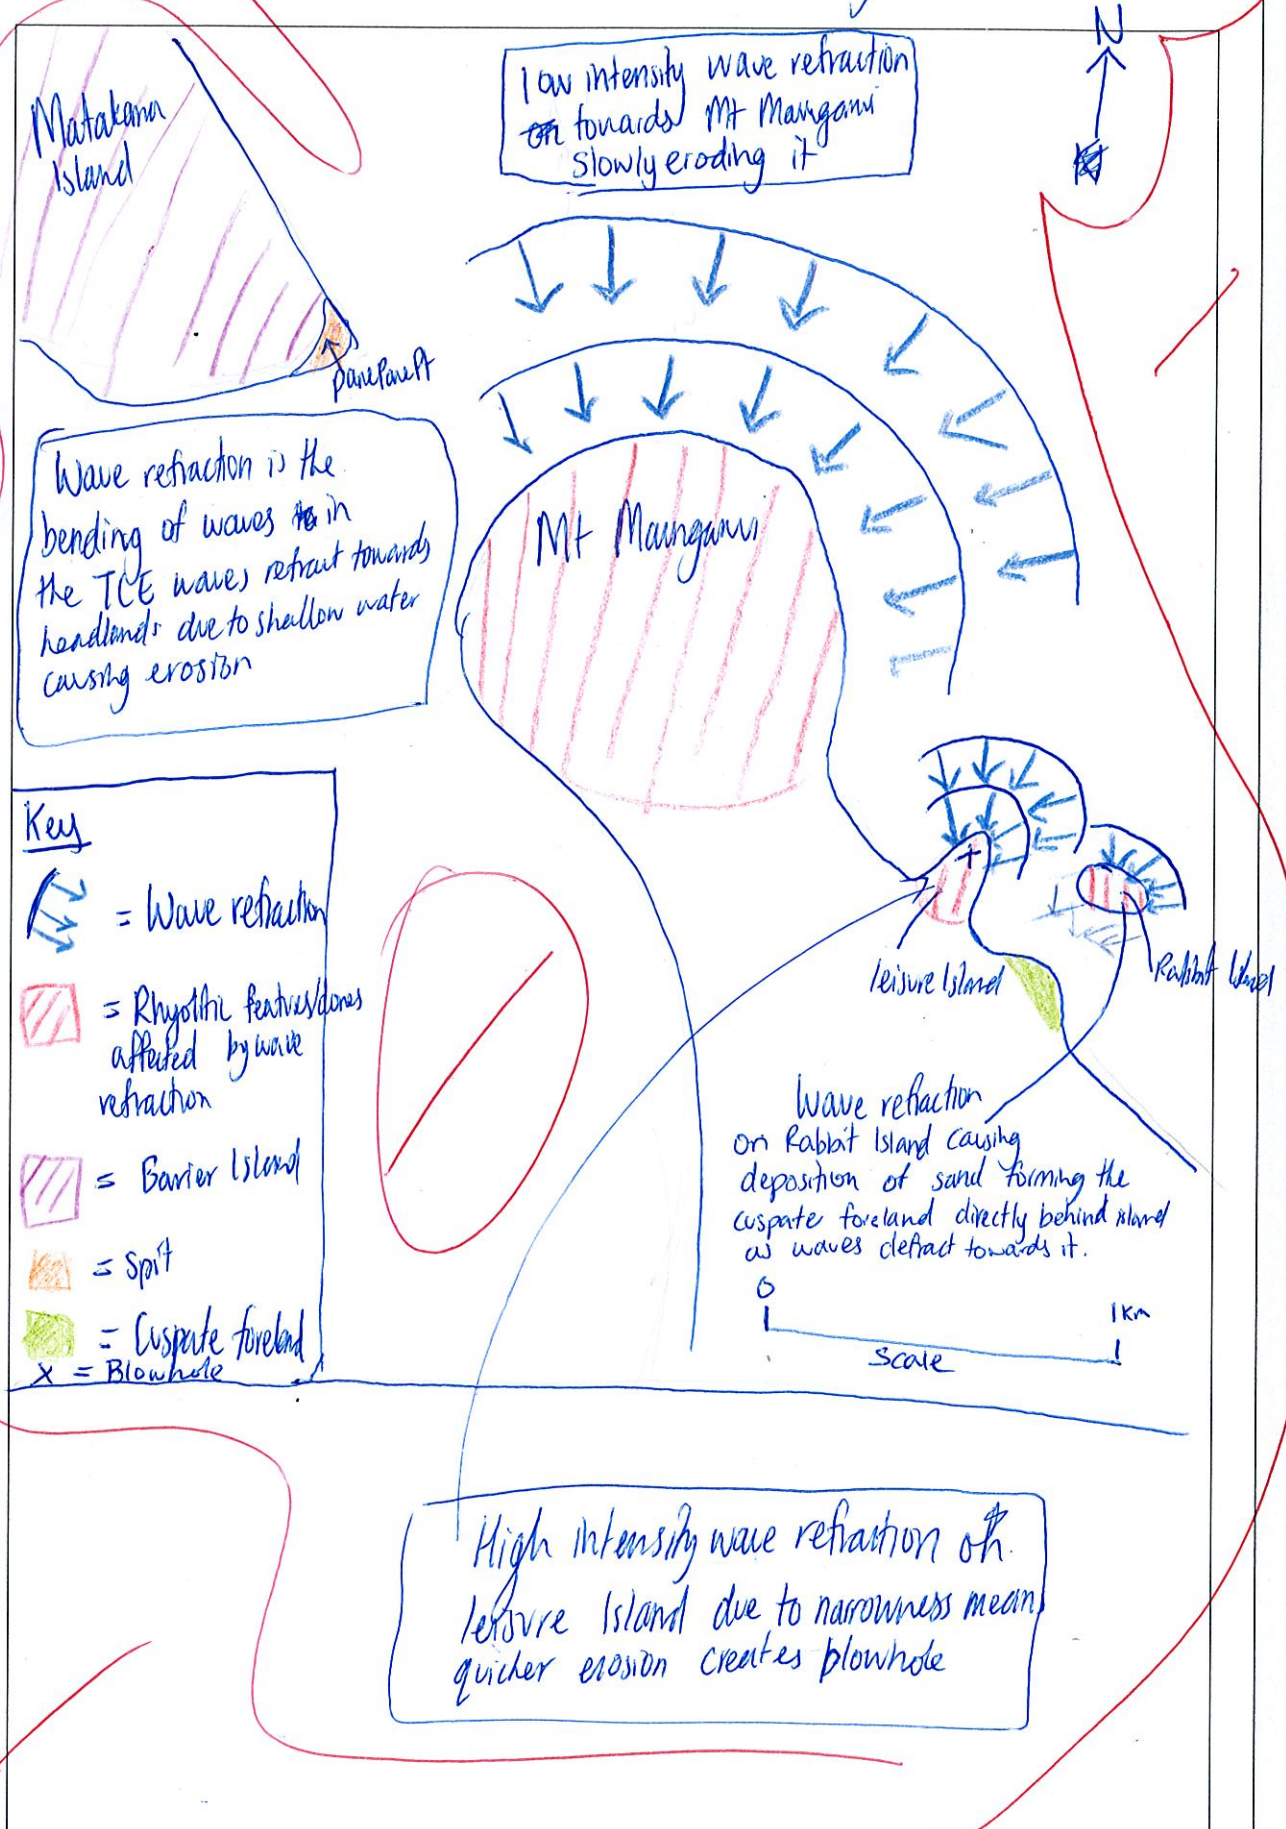 N
low intensity wave refraction
towards Mt Maunganui
slowly eroding it
Matakana
Island
panepane Pt
Wave refraction is the
bending of waves in
the TCE waves refract towards
headlands due to shallow water
causing erosion
Mt Maunganui
Key
= Wave refraction
= Rhyolitic features/domes
affected by wave
refraction
= Barrier Island
= Spit
= Cuspate foreland
X = Blowhole
leisure Island
Rabbit Island
Wave refraction
on Rabbit Island causing
deposition of sand forming the
cuspate foreland directly behind island
as waves defract towards it.
0
1km
Scale
High intensity wave refraction on
leisure Island due to narrowness means
quicker erosion creates blowhole